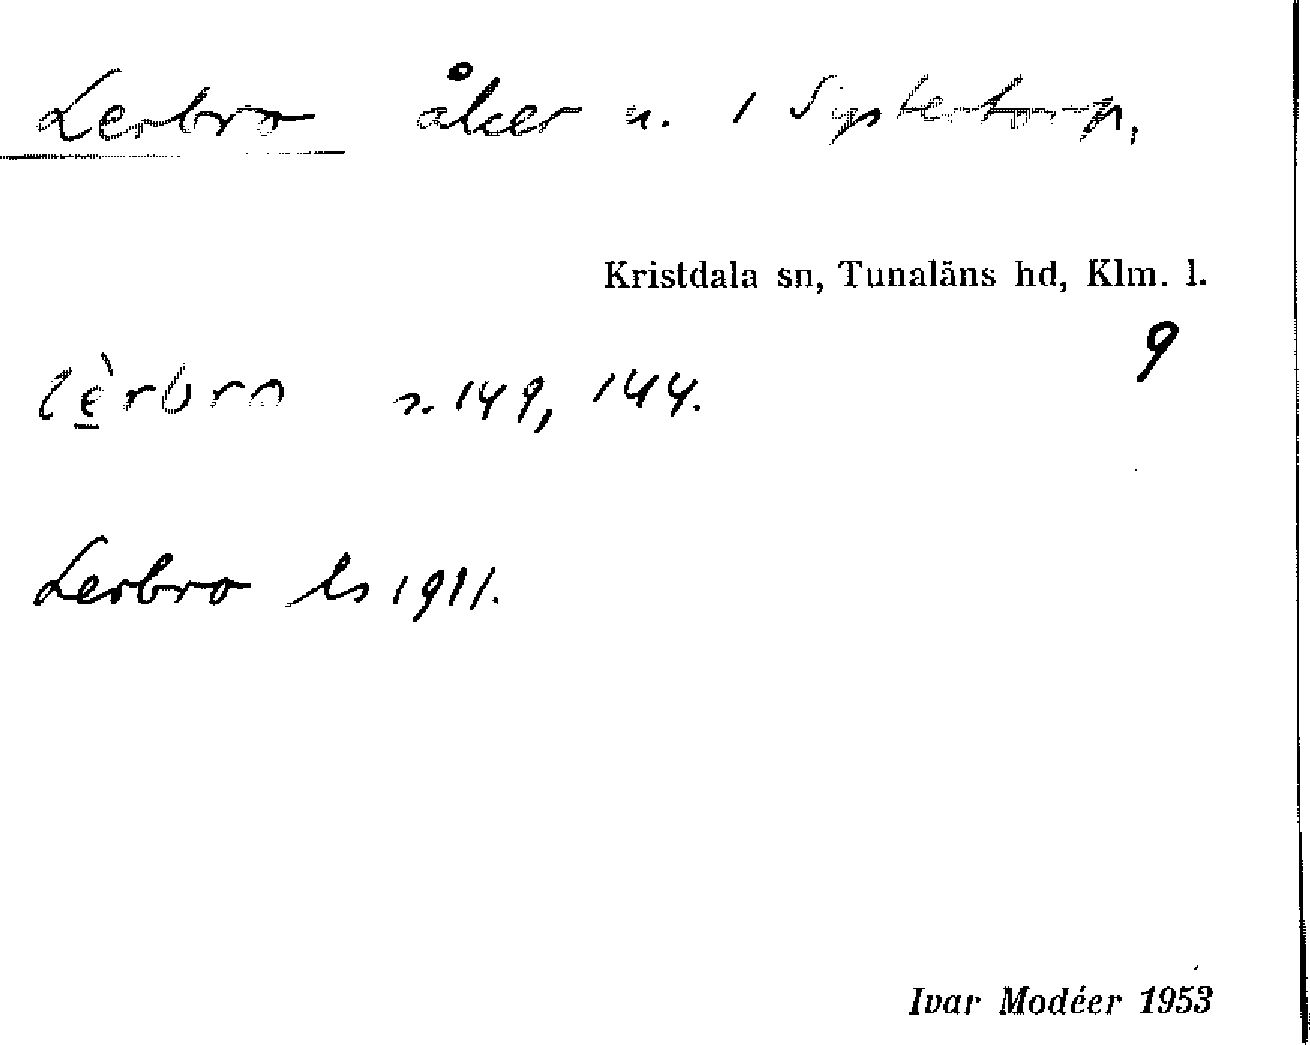 Lerbro åker u. 1 Systertorp,
Kristdala sn, Tunaläns hd, Klm. l.
9
lèrbro s. 149, 144.
Lerbro ls 1911.
Ivar Modéer 1953